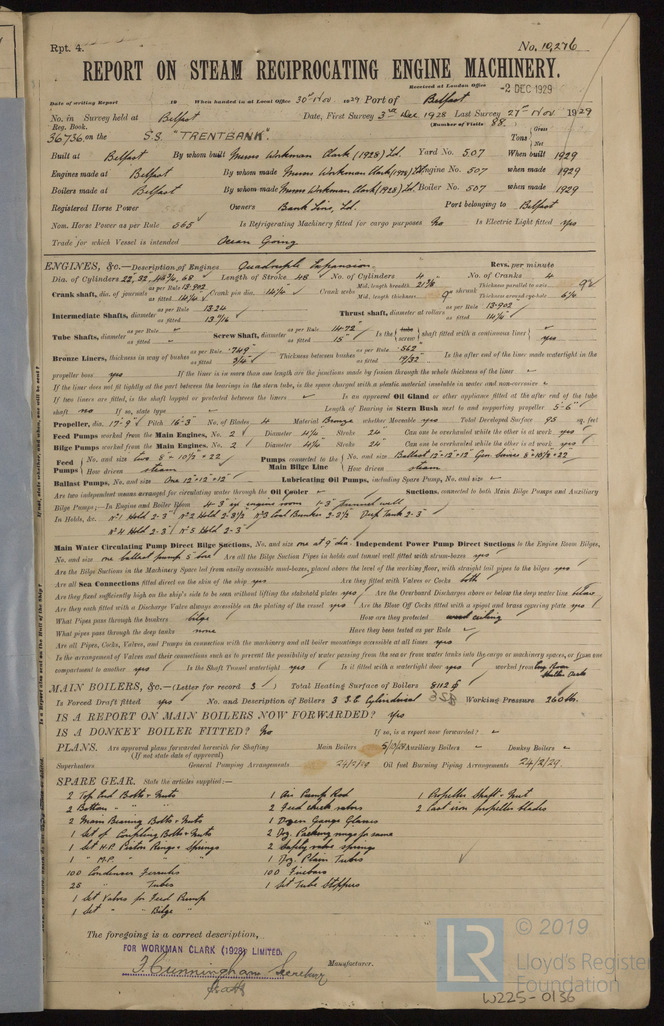 Rpt. 4. No. 10,276
REPORT ON STEAM RECIPROCATING ENGINE MACHINERY.
Received at London Office -2 DEC 1929
Date of writing Report 19 When handed in at Local Office 30th Nov 1929 Port of Belfast
No. in Survey held at Belfast Date, First Survey 3rd Dec 1928 Last Survey 27th Nov 1929
Reg. Book. (Number of Visits 88)
36736 on the S.S. "TRENTBANK" Tons { Gross Net
Built at Belfast By whom built Messrs Workman Clark (1928) Ld. Yard No. 507 When built 1929
Engines made at Belfast By whom made Messrs Workman Clark (1928) Ld Engine No. 507 when made 1929
Boilers made at Belfast By whom made Messrs Workman Clark (1928) Ld Boiler No. 507 when made 1929
Registered Horse Power Owners Bank Line, Ld. Port belonging to Belfast
Nom. Horse Power as per Rule 565 Is Refrigerating Machinery fitted for cargo purposes No Is Electric Light fitted Yes
Trade for which Vessel is intended Ocean Going
ENGINES, &c.—Description of Engines Quadruple Expansion Revs. per minute
Dia. of Cylinders 22, 32, 46¾, 68 Length of Stroke 48 No. of Cylinders 4 No. of Cranks 4
Crank shaft, dia. of journals as per Rule 13.902 as fitted 14¼ Crank pin dia. 14¼ Crank webs Mid. length breadth 21⅞ Mid. length thickness 9 shrunk Thickness parallel to axis 9 Thickness around eye-hole 6¼
Intermediate Shafts, diameter as per Rule 13.24 as fitted Thrust shaft, diameter at collars as per Rule 13.902 as fitted 14¼
Tube Shafts, diameter as per Rule as fitted Screw Shaft, diameter as per Rule 14.72 as fitted 15" Is the { tube screw } shaft fitted with a continuous liner { yes
Bronze Liners, thickness in way of bushes as per Rule .749 as fitted ¾ Thickness between bushes as per Rule .562 as fitted 19/32 Is the after end of the liner made watertight in the
propeller boss yes If the liner is in more than one length are the junctions made by fusion through the whole thickness of the liner
If the liner does not fit tightly at the part between the bearings in the stern tube, is the space charged with a plastic material insoluble in water and non-corrosive
If two liners are fitted, is the shaft lapped or protected between the liners Is an approved Oil Gland or other appliance fitted at the after end of the tube
shaft no If so, state type Length of Bearing in Stern Bush next to and supporting propeller 5'-6"
Propeller, dia. 17'-9" Pitch 16'-3" No. of Blades 4 Material Bronze whether Moveable yes Total Developed Surface 95 sq. feet
Feed Pumps worked from the Main Engines, No. 2 Diameter 4¼ Stroke 24 Can one be overhauled while the other is at work yes
Bilge Pumps worked from the Main Engines, No. 2 Diameter 4¼ Stroke 24 Can one be overhauled while the other is at work yes
Feed Pumps { No. and size two 8"×10½"×22 How driven steam Pumps connected to the Main Bilge Line { No. and size Ballast 12"×12"×12" Gen. Service 8"×10½"×22 How driven steam
Ballast Pumps, No. and size One 12"×12"×12" Lubricating Oil Pumps, including Spare Pump, No. and size
Are two independent means arranged for circulating water through the Oil Cooler Suctions, connected to both Main Bilge Pumps and Auxiliary
Bilge Pumps;—In Engine and Boiler Room 4-3" in engine room 1-3" Tunnel well
In Holds, &c. No1 Hold 2-3 No2 Hold 2-3½ No3 Coal Bunker 2-3½ Deep Tank 2-3
No4 Hold 2-3 No5 Hold 2-3
Main Water Circulating Pump Direct Bilge Suctions, No. and size one at 9" dia. Independent Power Pump Direct Suctions to the Engine Room Bilges,
No. and size one ballast pump 5" Are all the Bilge Suction Pipes in holds and tunnel well fitted with strum-boxes yes
Are the Bilge Suctions in the Machinery Space led from easily accessible mud-boxes, placed above the level of the working floor, with straight tail pipes to the bilges yes
Are all Sea Connections fitted direct on the skin of the ship yes Are they fitted with Valves or Cocks both
Are they fixed sufficiently high on the ship's side to be seen without lifting the stokehold plates yes Are the Overboard Discharges above or below the deep water line below
Are they each fitted with a Discharge Valve always accessible on the plating of the vessel yes Are the Blow Off Cocks fitted with a spigot and brass covering plate yes
What Pipes pass through the bunkers bilge How are they protected wood ceiling
What pipes pass through the deep tanks none Have they been tested as per Rule
Are all Pipes, Cocks, Valves, and Pumps in connection with the machinery and all boiler mountings accessible at all times yes
Is the arrangement of Valves and their connections such as to prevent the possibility of water passing from the sea or from water tanks into the cargo or machinery spaces, or from one
compartment to another yes Is the Shaft Tunnel watertight yes Is it fitted with a watertight door yes worked from Eng. Room Shelter Deck
MAIN BOILERS, &c.—(Letter for record 3) Total Heating Surface of Boilers 8112
Is Forced Draft fitted yes No. and Description of Boilers 3 S.E. Cylindrical Working Pressure 260 lbs.
IS A REPORT ON MAIN BOILERS NOW FORWARDED? Yes
IS A DONKEY BOILER FITTED? No If so, is a report now forwarded?
PLANS. Are approved plans forwarded herewith for Shafting Main Boilers Auxiliary Boilers Donkey Boilers
(If not state date of approval)
Superheaters General Pumping Arrangements 24/2/29 Oil fuel Burning Piping Arrangements 24/2/29.
SPARE GEAR. State the articles supplied:—
2 Top End Bolts & Nuts 1 Air Pump Rod 1 Propeller Shaft & Nut
2 Bottom " " 2 Feed check valves 2 Cast iron propeller blades
2 Main Bearing Bolts & Nuts 1 Dozen Gauge Glasses
1 Set of Coupling Bolts & Nuts 2 Doz. Packing rings for same
1 Set H.P. Piston Rings & Springs 2 Safety valve springs
1 " M.P. " " 1 Doz. Plain Tubes
100 Condenser Ferrules 100 Firebars
25 " Tubes 1 Set Tube Stoppers
1 Set Valves for Feed Pump
1 Set " " Bilge "
The foregoing is a correct description,
FOR WORKMAN CLARK (1928) LIMITED.
J. Cunningham Secretary Manufacturer.
© 2019
LR Lloyd's Register
Foundation
W225-0136